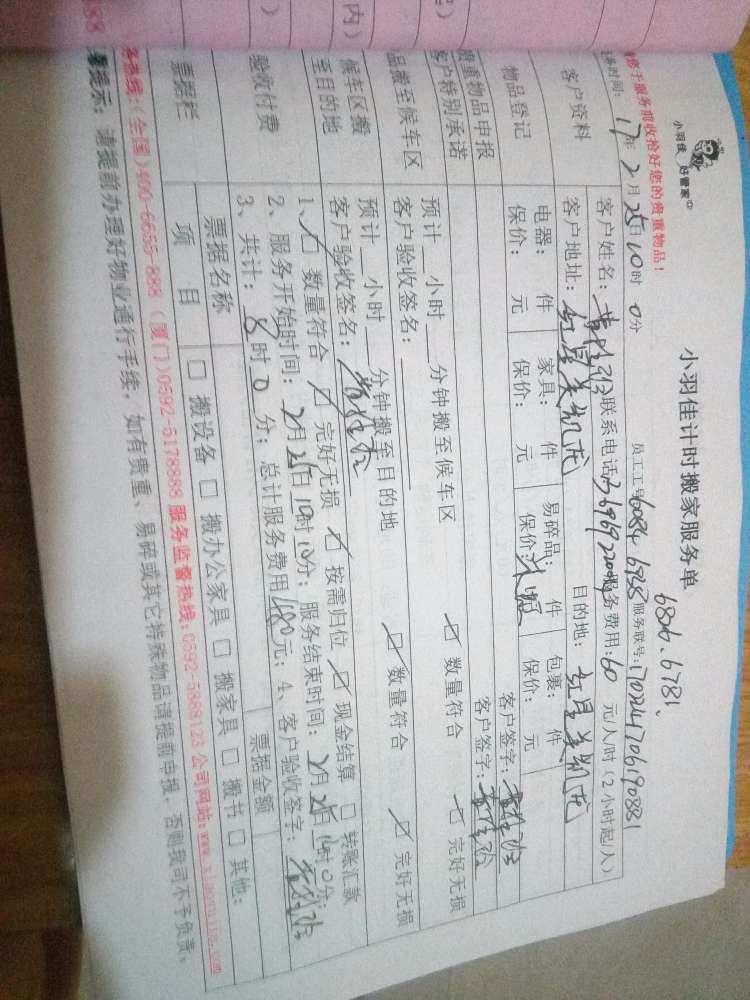 小羽佳 好管家
小羽佳计时搬家服务单
6826、6781、
员工工号:6084 6828 服务联号:170224706190881
务于服务前收拾好您的贵重物品!
时间: 17年 2月 25日 10时 0分
服务费用:60 元/人/时(2小时起/人)
客户资料
客户姓名: 联系电话
客户地址:红星美凯龙 目的地: 红星美凯龙
物品登记
电器: 件 家具: 件 易碎品: 件 包裹: 件
保价: 元 保价: 元 保价: 保价: 元
贵重物品申报 客户签字:
客户特别承诺 客户签字:
品搬至候车区
预计__小时__分钟搬至候车区 ☑ 数量符合 ☑ 完好无损
客户验收签名:
候车区搬
至目的地
预计__小时__分钟搬至目的地 ☑ 数量符合 ☑ 完好无损
客户验收签名:
验收付费
1、☑ 数量符合 ☑ 完好无损 ☑ 按需归位 ☑ 现金结算 □ 转账汇款
2、服务开始时间: 2月25日10时10分; 服务结束时间: 2月 日 时0分;
3、共计: 8时0分; 总计服务费用480元; 4、客户验收签字:
票据栏
票据名称 票据金额
项 目 □ 搬设备 □ 搬办公家具 □ 搬家具 □ 搬书 □ 其他:
务热线:(全国)400-6655-888 (厦门)0592-5178888 服务监督热线:0592-5888123 公司网站:www.xiaoyujia.com
提示: 请提前办理好物业通行手续, 如有贵重、易碎或其它特殊物品请提前申报, 否则我司不予负责。